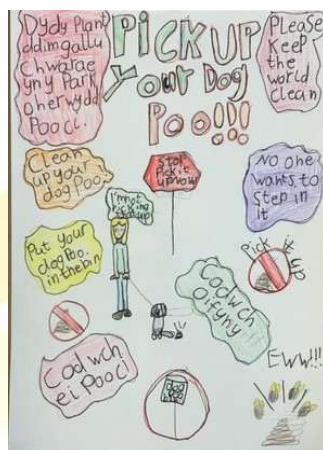 Dydy Plant
ddim gallu
Chwarae
yn y Park
oherwydd
Poo ci.
Pick up
Your Dog
Poo!!!
Please
keep
the
world
clean
Clean
up your
dog Poo.
Stop
Pick it
up now
No one
wants to
step in
it
I'm not
Picking
that up
Put your
dog Poo
in the bin
Pick it
up
Codwch
Ei Poo ci
dog
Poo
Eww!!!